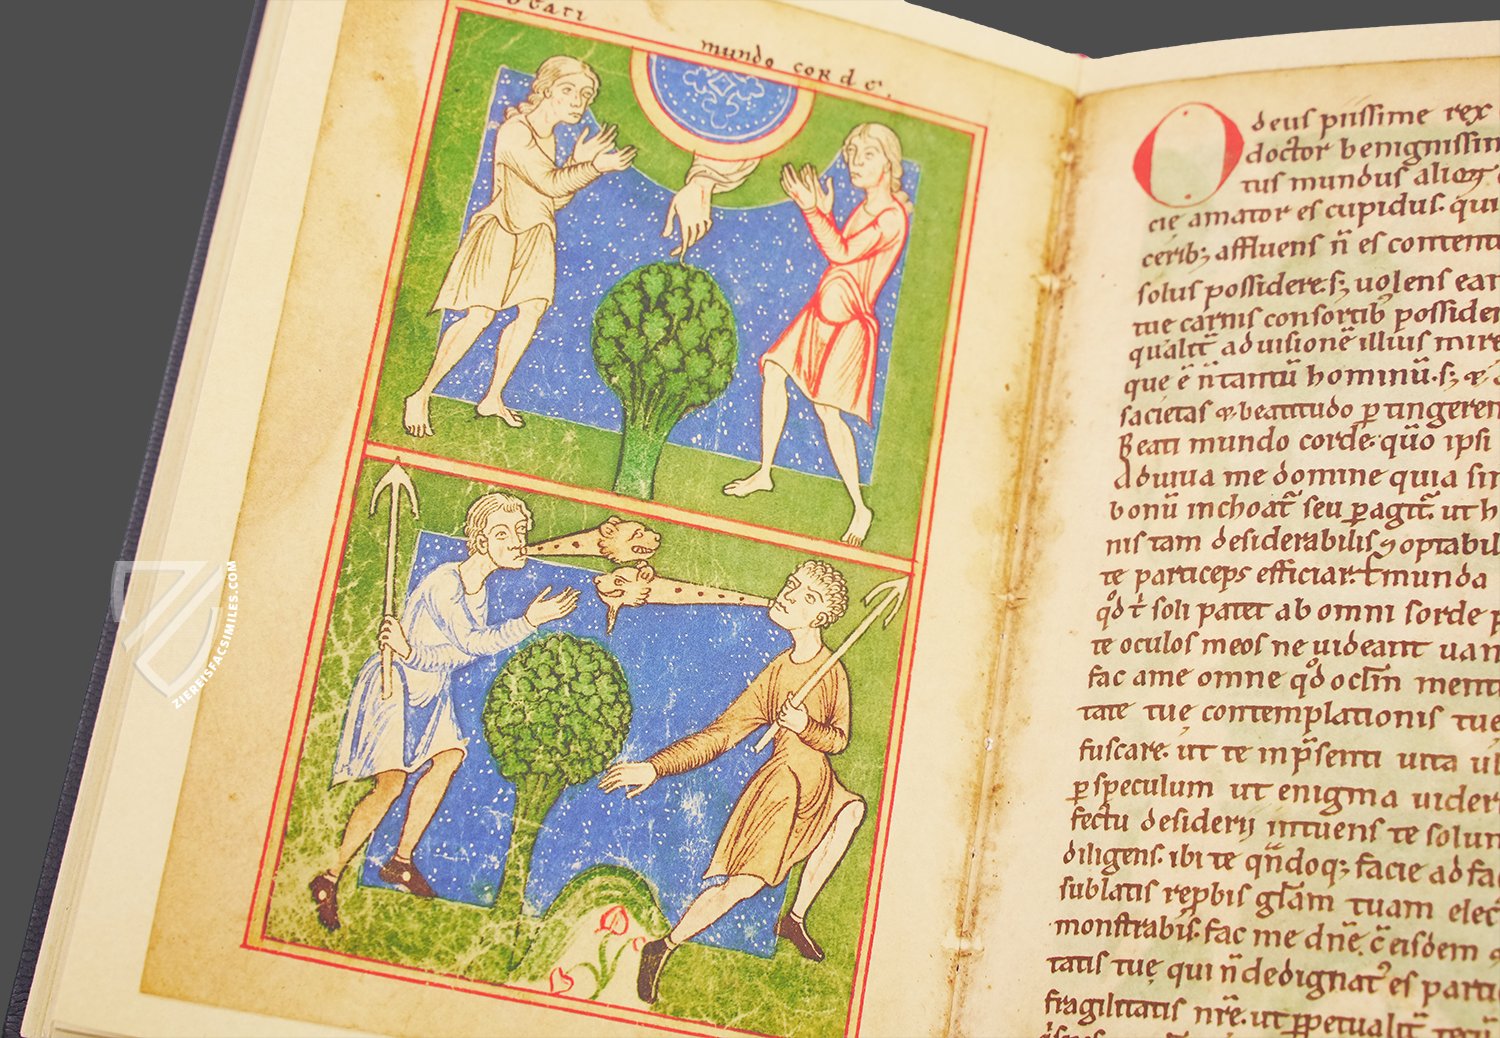 beati
mundo corde.
O deus piissime rex
doctor benignissim
tus mundus alioq
cie amator es cupidus. qui
cerib; affluens n̄ es contentu
solus possidere. s; uolens eam
tue carnis consortib possider
qualit ad uisionē illius mire
que ē n̄ tantū hominū. s; &
sacietas & beatitudo ptingeren
Beati mundo corde. qūo ipsi
Adiuua me domine quia sin
bonū inchoat seu pagit. ut h
nis tam desiderabilis & optabil
te particeps efficiar. & munda
qd t soli patet ab omni sorde p
te oculos meos ne uideant uan
fac a me omne qd oclm ment
tate tuę contemplationis tue
fuscare. ut te inpsenti uita u
p speculum ut enigma uider
fectu desiderii intuens te solum
diligens. ibi te qndoq; facie ad fa
sublatis repbis glam tuam elect
monstrabis. fac me dne. c eisdem
tatis tuę qui n dedignat es parti
fragilitatis nre. ut ppetualit tecu
ZIEREISFACSIMILES.COM